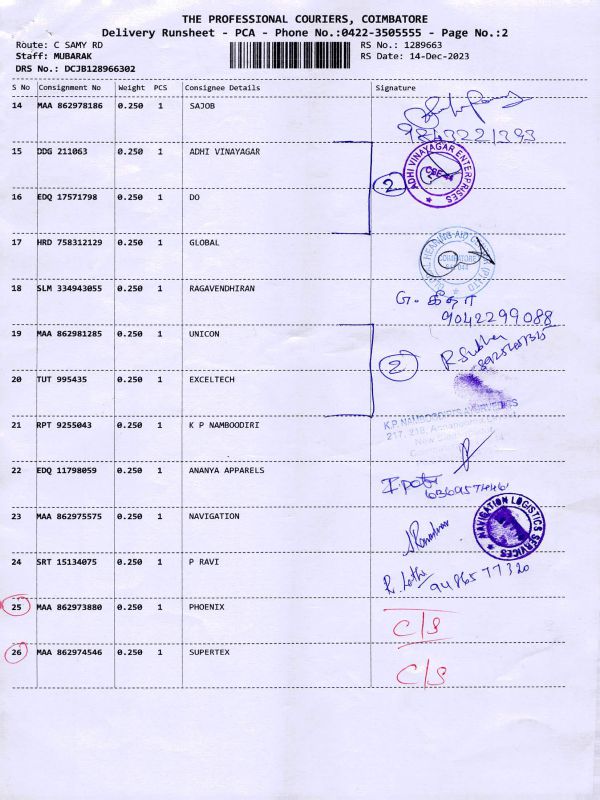 THE PROFESSIONAL COURIERS, COIMBATORE
Delivery Runsheet - PCA - Phone No.:0422-3505555 - Page No.:2
Route: C SAMY RD RS No.: 1289663
Staff: MUBARAK RS Date: 14-Dec-2023
DRS No.: DCJB128966302
S No Consignment No Weight PCS Consignee Details Signature
14 MAA 862978186 0.250 1 SAJOB
15 DDG 211063 0.250 1 ADHI VINAYAGAR 2 ADHI VINAYAGAR ENTERPRISES
16 EDQ 17571798 0.250 1 DO
17 HRD 758312129 0.250 1 GLOBAL
18 SLM 334943055 0.250 1 RAGAVENDHIRAN G. கீதா
9042299088
19 MAA 862981285 0.250 1 UNICON
20 TUT 995435 0.250 1 EXCELTECH 2
21 RPT 9255043 0.250 1 K P NAMBOODIRI
22 EDQ 11798059 0.250 1 ANANYA APPARELS
23 MAA 862975575 0.250 1 NAVIGATION NAVIGATION LOGISTICS SERVICES
24 SRT 15134075 0.250 1 P RAVI 9486577320
25 MAA 862973880 0.250 1 PHOENIX C/S
26 MAA 862974546 0.250 1 SUPERTEX C/S